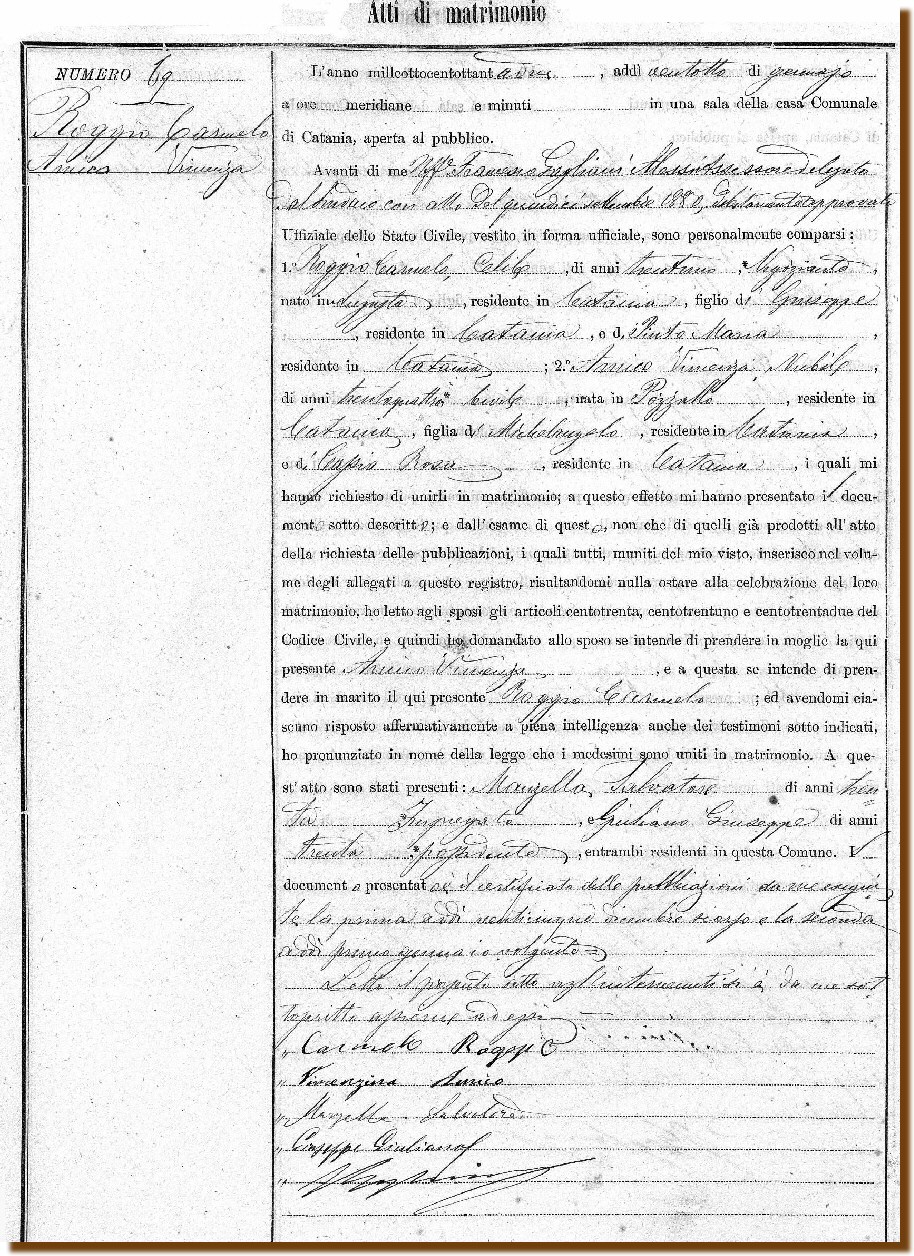 Atti di matrimonio
NUMERO 69
Roggio Carmelo
Amico Vincenza
L'anno millottocentottant adue , addì ventotto di gennajo
a ore meridiane e minuti in una sala della casa Comunale
di Catania, aperta al pubblico.
Avanti di me Francesco Assessore delegato
dal Sindaco con atto del quindici settembre 1880, debitamente approvato
Uffiziale dello Stato Civile, vestito in forma ufficiale, sono personalmente comparsi:
1.° Roggio Carmelo, Celibe , di anni trentuno , Negoziante ,
nato in Augusta , residente in Catania , figlio di Giuseppe
, residente in Catania , e di Pinto Maria ,
residente in Catania ; 2.° Amico Vincenza Nubile ,
di anni trentaquattro Civile , nata in Pozzallo , residente in
Catania , figlia di Michelangelo , residente in Catania ,
e di Rosa , residente in Catania , i quali mi
hanno richiesto di unirli in matrimonio; a questo effetto mi hanno presentato i docu-
mento sotto descritto; e dall'esame di questo, non che di quelli già prodotti all'atto
della richiesta delle pubblicazioni, i quali tutti, muniti del mio visto, inserisco nel volu-
me degli allegati a questo registro, risultandomi nulla ostare alla celebrazione del loro
matrimonio, ho letto agli sposi gli articoli centotrenta, centotrentuno e centotrentadue del
Codice Civile, e quindi ho domandato allo sposo se intende di prendere in moglie la qui
presente Amico Vincenza , e a questa se intende di pren-
dere in marito il qui presente Roggio Carmelo ; ed avendomi cia-
scuno risposto affermativamente a piena intelligenza anche dei testimoni sotto indicati,
ho pronunziato in nome della legge che i medesimi sono uniti in matrimonio. A que-
st'atto sono stati presenti: Manzella Salvatore di anni tren
ta Impiegato , Giuliano Giuseppe di anni
trenta possidente , entrambi residenti in questa Comune. I
documento presentato è il certificato delle pubblicazioni da me esegui
te la prima addì venticinque dicembre scorso e la seconda
addì primo gennaio volgente
Letto il presente atto agl'intervenuti si è da me sot
toscritto assieme ad essi
" Carmelo Roggio
" Vincenzina Amico
" Manzella Salvatore
" Giuseppe Giuliano